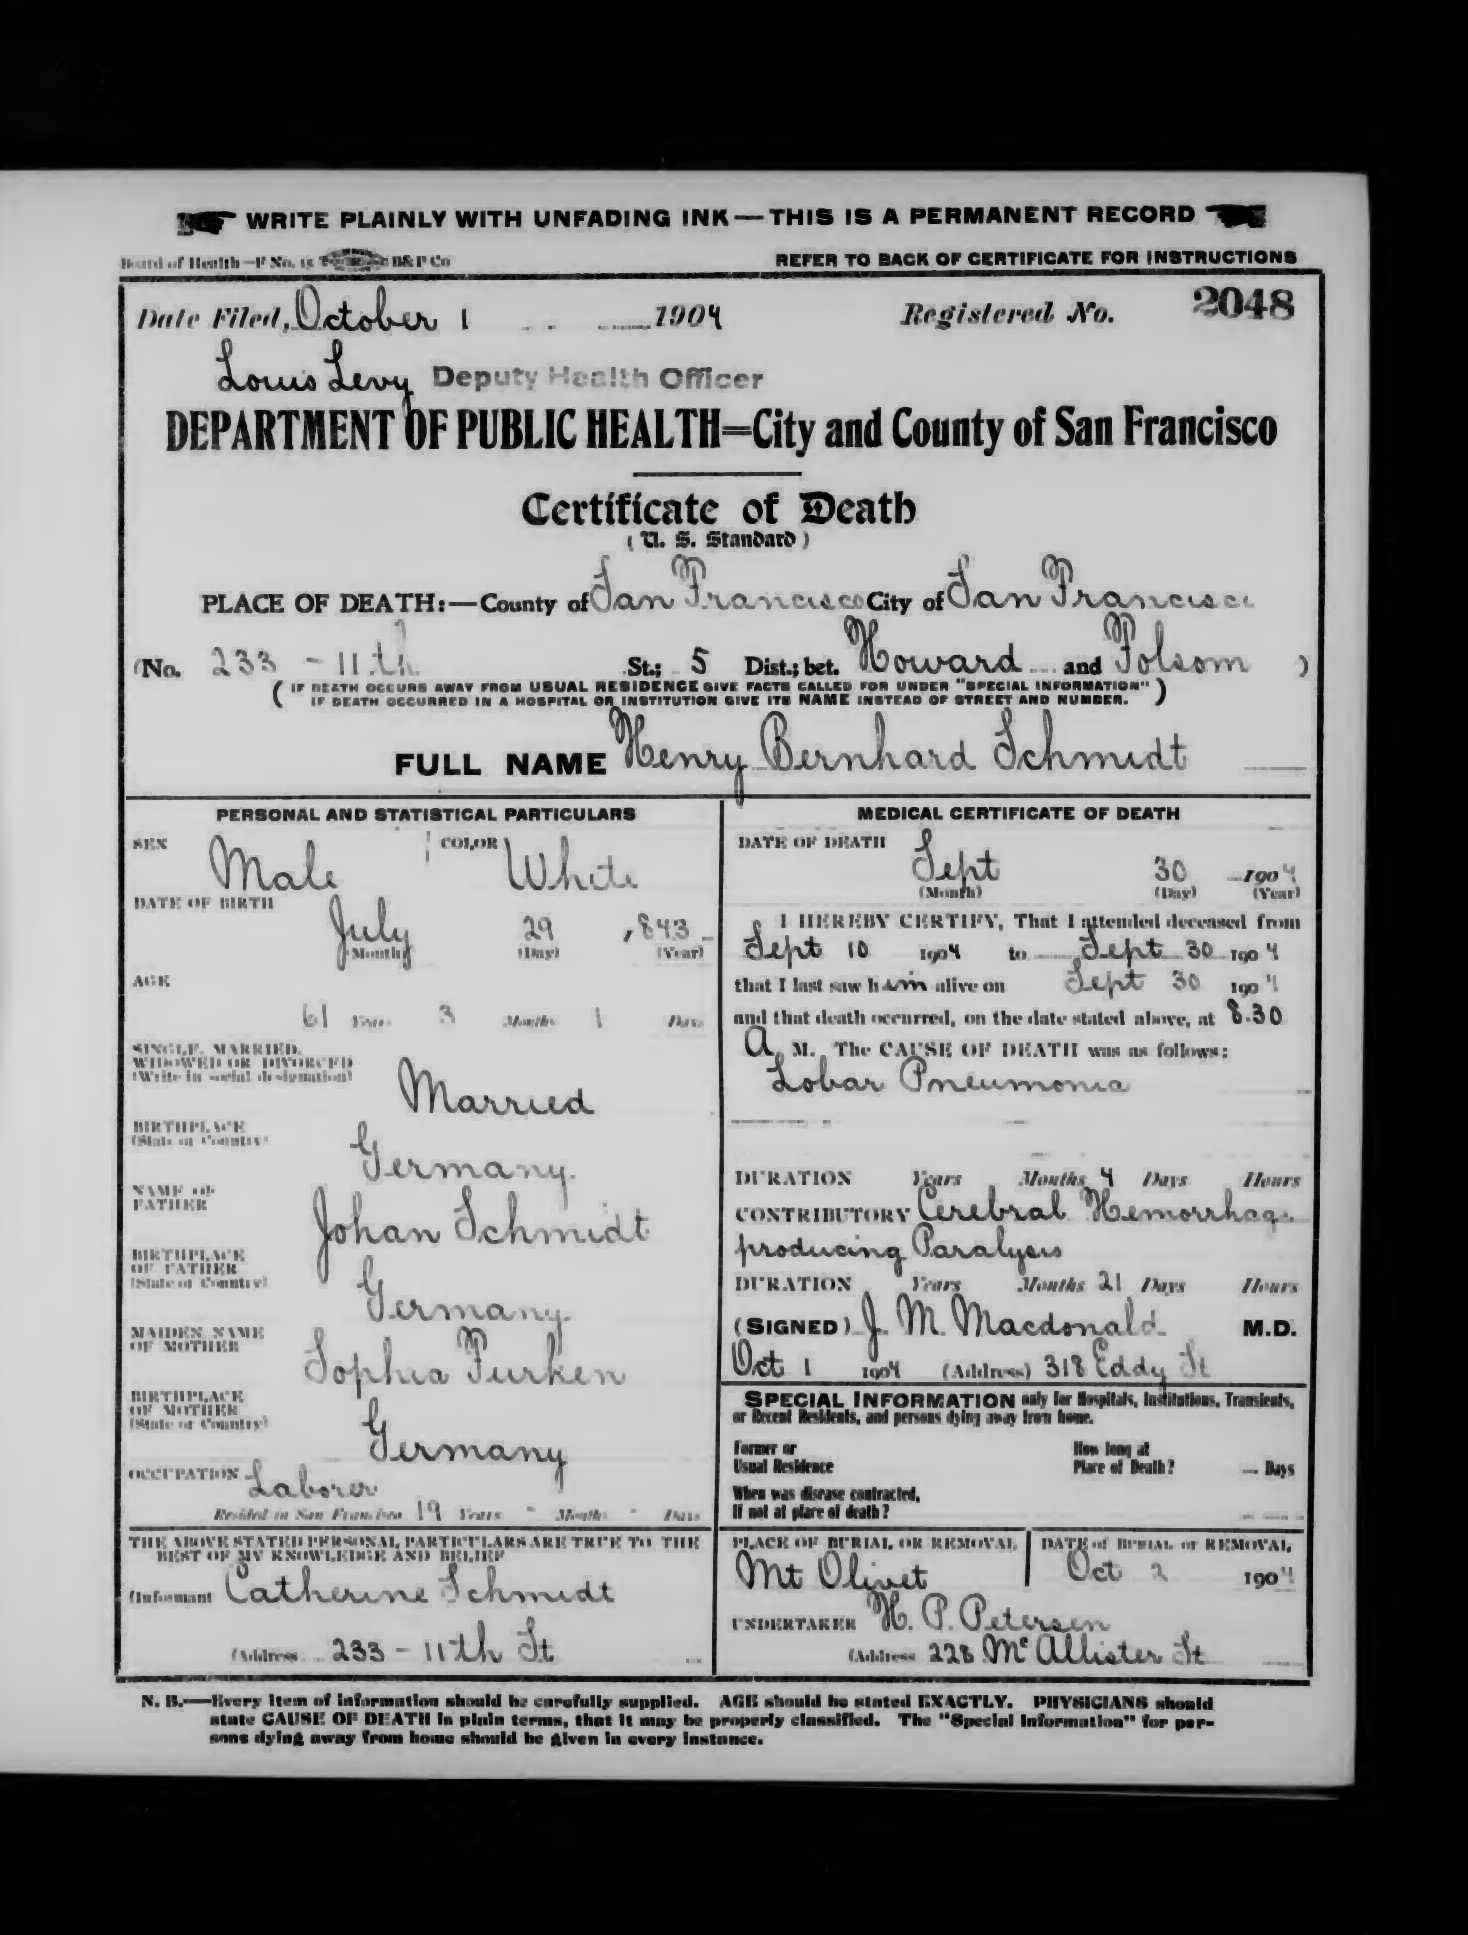 WRITE PLAINLY WITH UNFADING INK—THIS IS A PERMANENT RECORD
Board of Health—F No. 15 B&P Co REFER TO BACK OF CERTIFICATE FOR INSTRUCTIONS
Date Filed, October 1 1904 Registered No. 2048
Louis Levy Deputy Health Officer
DEPARTMENT OF PUBLIC HEALTH=City and County of San Francisco
Certificate of Death
(U. S. Standard)
PLACE OF DEATH:—County of San Francisco City of San Francisco
(No. 233 - 11th St.; 5 Dist.; bet. Howard and Folsom )
( IF DEATH OCCURS AWAY FROM USUAL RESIDENCE GIVE FACTS CALLED FOR UNDER "SPECIAL INFORMATION" )
IF DEATH OCCURRED IN A HOSPITAL OR INSTITUTION GIVE ITS NAME INSTEAD OF STREET AND NUMBER.
FULL NAME Henry Bernhard Schmidt
PERSONAL AND STATISTICAL PARTICULARS
SEX Male COLOR White
DATE OF BIRTH
July 29 , 843
(Month) (Day) (Year)
AGE
61 Years 3 Months 1 Days
SINGLE, MARRIED,
WIDOWED OR DIVORCED
(Write in social designation)
Married
BIRTHPLACE
(State or Country)
Germany.
NAME OF
FATHER
Johan Schmidt
BIRTHPLACE
OF FATHER
(State or Country)
Germany.
MAIDEN NAME
OF MOTHER
Sophia Furken
BIRTHPLACE
OF MOTHER
(State or Country)
Germany
OCCUPATION Laborer
Resided in San Francisco 19 Years - Months - Days
THE ABOVE STATED PERSONAL PARTICULARS ARE TRUE TO THE
BEST OF MY KNOWLEDGE AND BELIEF
(Informant Catherine Schmidt
(Address 233 - 11th St
MEDICAL CERTIFICATE OF DEATH
DATE OF DEATH
Sept 30 1904
(Month) (Day) (Year)
I HEREBY CERTIFY, That I attended deceased from
Sept 10 1904 to Sept 30 1904
that I last saw him alive on Sept 30 1904
and that death occurred, on the date stated above, at 8.30
A M. The CAUSE OF DEATH was as follows:
Lobar Pneumonia
DURATION Years Months 4 Days Hours
CONTRIBUTORY Cerebral Hemorrhage
producing Paralysis
DURATION Years Months 21 Days Hours
(SIGNED) J. M. Macdonald M.D.
Oct 1 1904 (Address) 318 Eddy St
SPECIAL INFORMATION only for Hospitals, Institutions, Transients,
or Recent Residents, and persons dying away from home.
Former or
Usual Residence
How long at
Place of Death? Days
When was disease contracted,
If not at place of death?
PLACE OF BURIAL OR REMOVAL
Mt Olivet
DATE of BURIAL or REMOVAL
Oct 2 1904
UNDERTAKER H. P. Petersen
(Address 228 McAllister St
N. B.—Every item of information should be carefully supplied. AGE should be stated EXACTLY. PHYSICIANS should
state CAUSE OF DEATH in plain terms, that it may be properly classified. The "Special Information" for per-
sons dying away from home should be given in every instance.